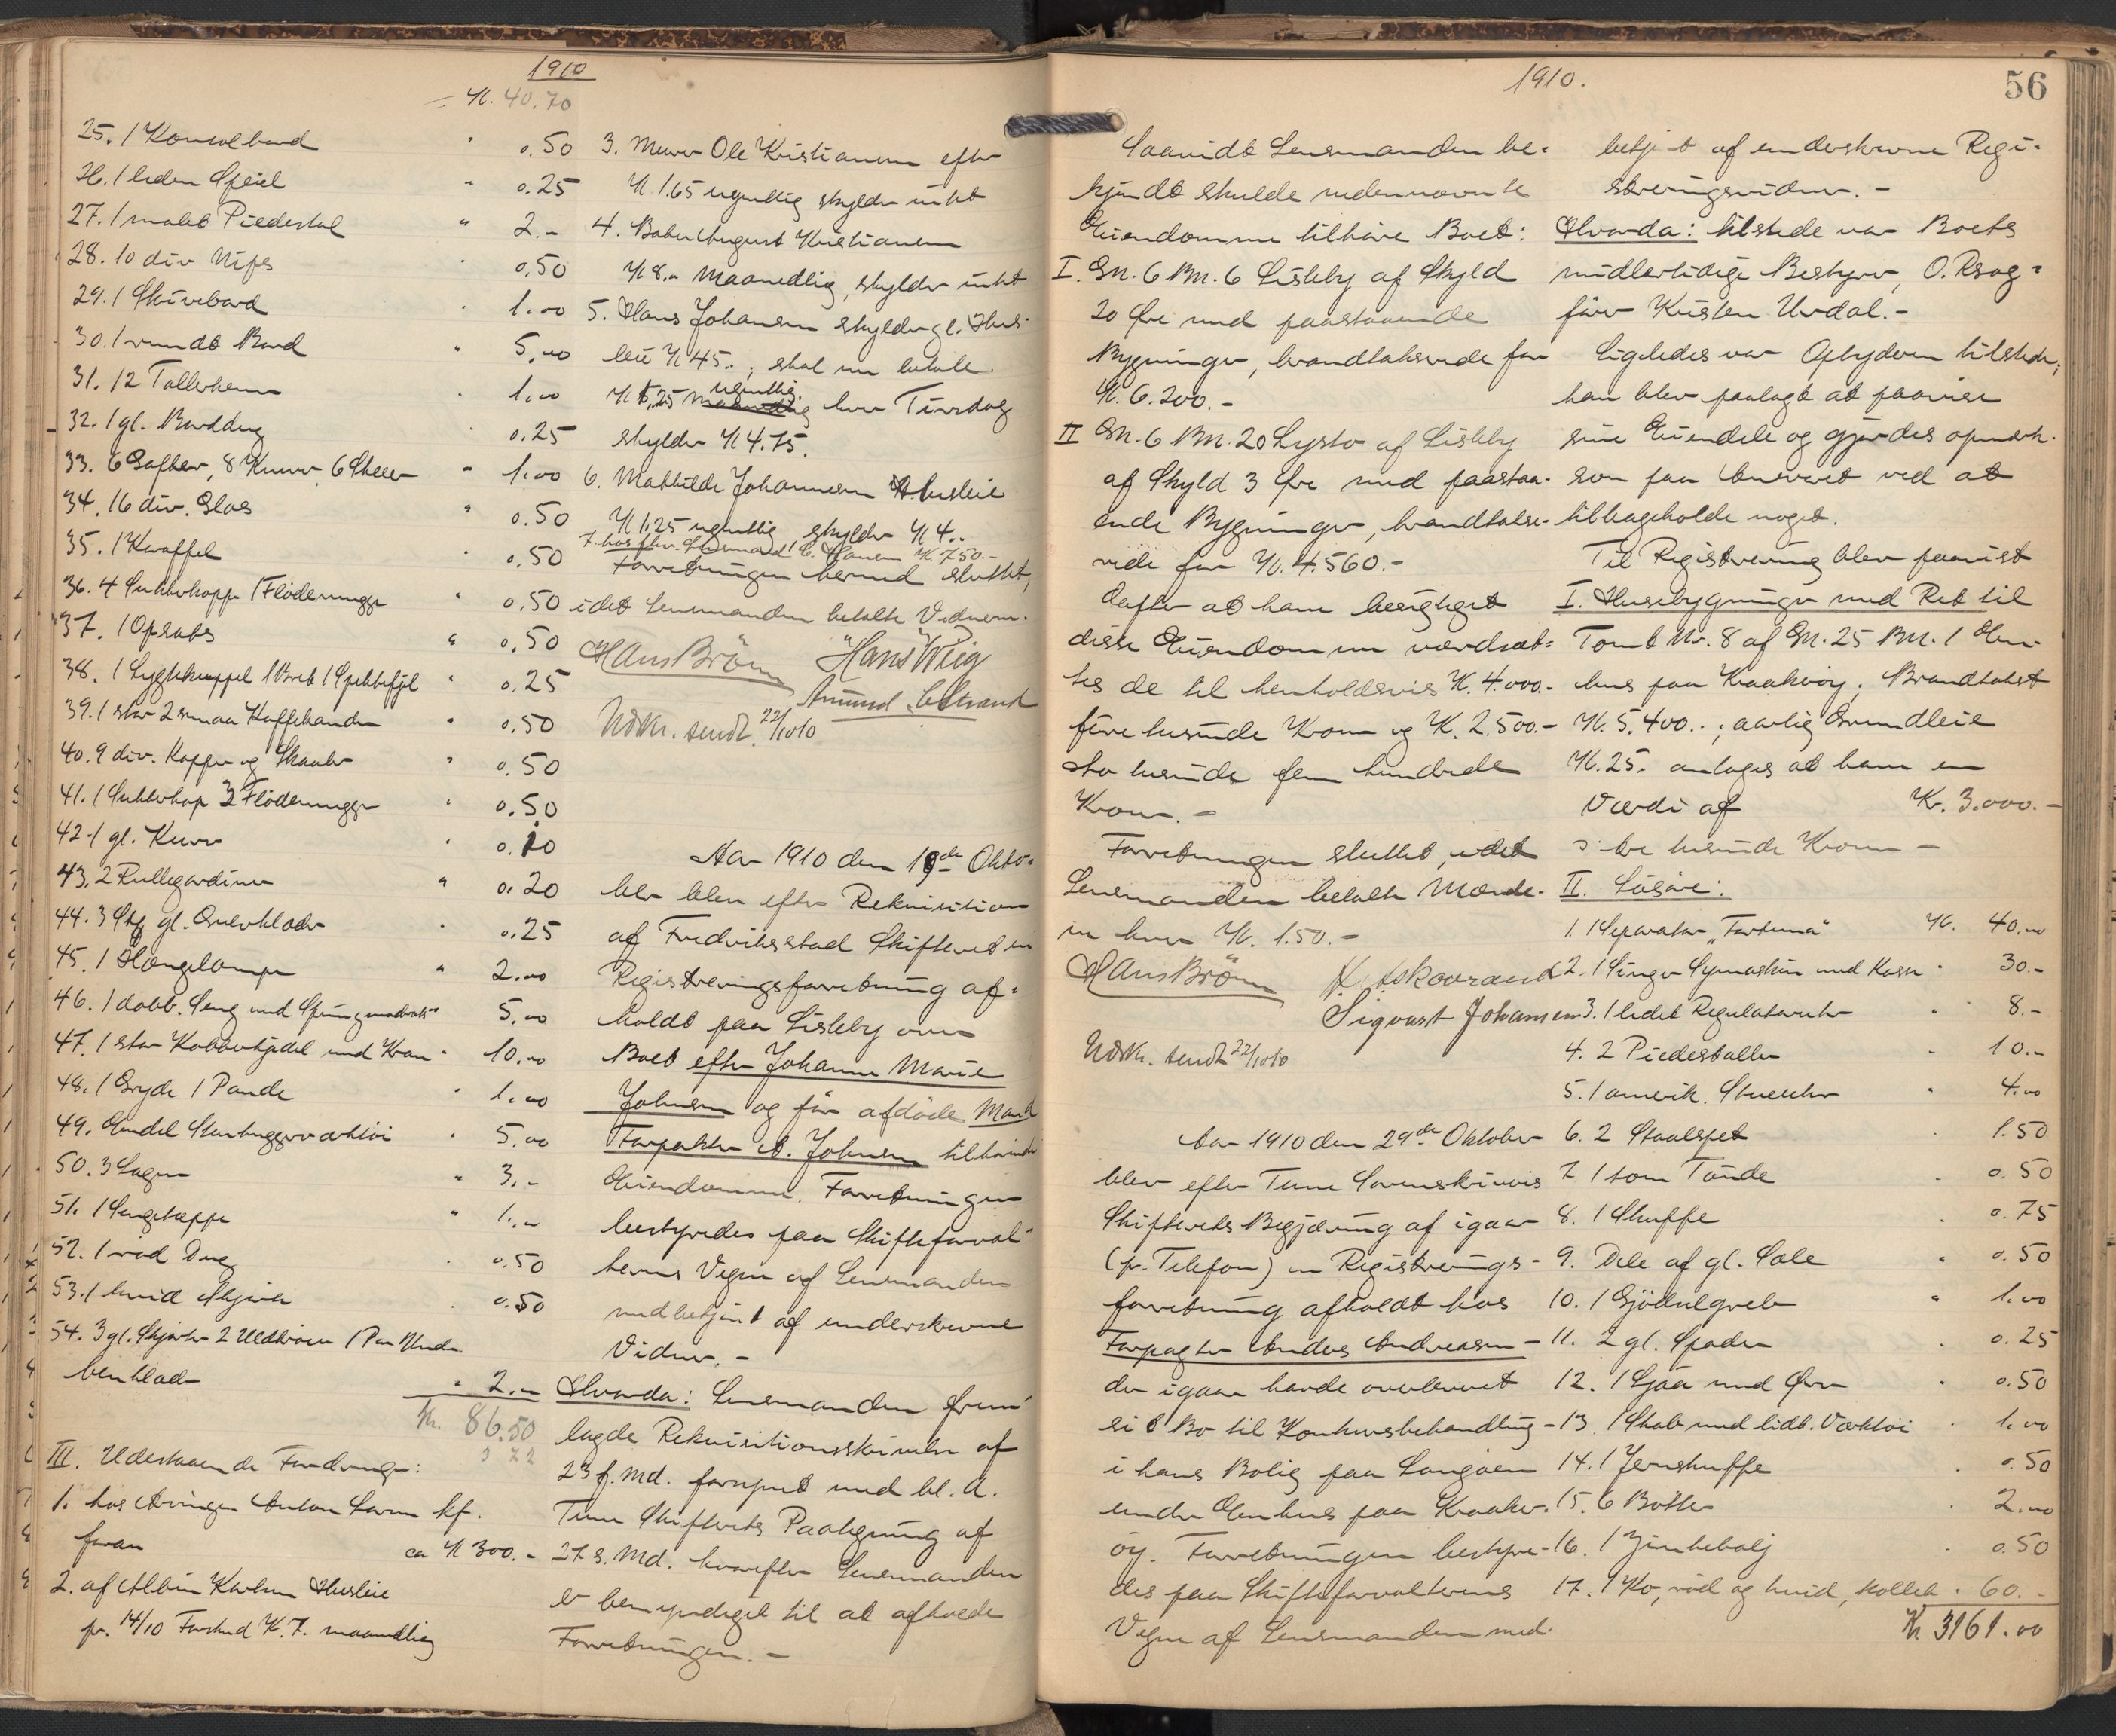 1910
Kr. 40.70
25. 1 Konsolbord " 0.50
26. 1 liden Speil " 0.25
27. 1 malet Piedestal " 2.-
28. 10 div Nips " 0.50
29. 1 Skrivebord " 1.00
30. 1 rundt Bord " 5.00
31. 12 Tallerkener " 1.00
32. 1 gl. Borddug " 0.25
33. 6 Gafler, 8 Kniver, 6 Skeer " 1.00
34. 16 div. Glas " 0.50
35. 1 Karaffel " 0.50
36. 4 Sukkerkopper 1 Flödemugge " 0.50
37. 1 Opsats " 0.50
38. 1 Lygtekuppel 1 Bret 1 " 0.25
39. 1 stor 2 smaa Kaffekander " 0.50
40. 9 div. Kopper og Skaaler " 0.50
41. 1 Sukkerkop 3 Flödemugger " 0.50
42. 1 gl. Kurv " 0.10
43. 2 Rullegardiner " 0.20
44. 3 Stk gl. Gulvklæder " 0.25
45. 1 Hængelampe " 2.00
46. 1 dobb. Seng med Springmadrats " 5.00
47. 1 stor Kobberkjedel med Kran " 10.00
48. 1 Gryde 1 Pande " 1.00
49. Endel Stenhuggerværktöi " 5.00
50. 3 Lagen " 3.-
51. 1 Sengetæppe " 1.-
52. 1 röd Dug " 0.50
53. 1 hvid Skjorte " 0.50
54. 3 gl. Skjorter 2 Uldtröier 1 Par Under-
benklæder " 2.-
Kr. 86.50
III. Udestaaende Fordringer:
1. hos Arvingen Anton Larsen kfr.
foran ca Kr 300.-
2. af Albin Karlsen Husleie
pr. 14/10 Forskud Kr. 7. maanedlig
3. Murer Ole Kristiansen efter
Kr 1.65 ugentlig skylder intet
4. Baker August Kristiansen
Kr 8.- maanedlig, skylder intet
5. Hans Johansen skylder gl. Hus-
leie Kr 45.-; skal nu betale
ugentlig
Kr 1,25 maanedlig hver Tirsdag
skylder Kr 4.75.
6. Mathilde Johannesen Husleie
Kr 1.25 ugentlig skylder Kr 4.-
7. hos fhv. C. Hansen Kr. 750.-
Forretningen hermed sluttet,
idet Lensmanden betalte Vidnerne.
Hans Bröm Hans Wiig
Amund Strand
Udskr. sendt 22/10 10
Aar 1910 den 19de Okto-
ber blev efter Rekvisition
af Fredriksstad Skifteret en
Registreringsforretning af-
holdt paa Lisleby over
Boet efter Johanne Marie
Johnsen og før afdöde Mand
Forpakter A. Johnsen tilhörende
Eiendomme. Forretningen
bestyredes paa Skifteforval-
terens Vegne af Lensmanden
med betjent af underskrevne
Vidner.-
Hvorda: Lensmanden frem-
lagde Rekvisitionsskrivelse af
23 f. Md. forsynet med bl. a.
Tune Skifterets Paategning af
27 s. Md. hvorefter Lensmanden
er bemyndiget til at afholde
Forretningen.-
1910.
56
Saavidt Lensmanden be-
kjendt skulde nedennævnte
Eiendomme tilhöre Boet:
I. Gn. 6 Bn. 6 Lisleby af Skyld
20 Øre med paastaaende
Bygninger, brandtakserede for
Kr. 6.200.-
II Gn. 6 Bn. 20 Lysto af Lisleby
af Skyld 3 Øre med paastaa-
ende Bygninger, brandtakse-
rede for Kr. 4.560.-
Efter at have besigtiget
disse Eiendomme værdsat-
tes de til henholdsvis Kr. 4.000.-
fire tusinde Kroner og Kr. 2.500.-
to tusinde fem hundrede
Kroner.-
Forretningen sluttet, idet
Lensmanden betalte Mænde-
ne hver Kr. 1.50.-
Hans Bröm
Sigvart Johansen
Udskr. sendt 22/10 10
Aar 1910 den 29de Oktober
blev efter Tune Sorenskriveris
Skifterets Begjæring af igaar
(pr. Telefon) en Registrerings-
forretning afholdt hos
Forpagter Anders Andreasen -
der igaar havde overleveret
sit Bo til Konkursbehandling -
i hans Bolig paa Langöen
under Enhus paa Kraaker-
öy. Forretningen bestyre-
des paa Skifteforvalterens
Vegne af Lensmanden med-
betjent af underskrevne Regi-
streringsvidner.-
Hvorda: tilstede var Boets
midlertidige Bestyrer, O. Rsag-
förer Kristen Urdal.-
Ligeledes var Opbyderen tilstede;
han blev paalagt at paavise
sine Eiendele og gjordes opmærk-
som paa Ansvaret ved at
tilbageholde noget.
Til Registrering blev paavist
I. Husebygninger med Ret til
Tomt Nr. 8 af Gn. 25 Bn. 1 En-
hus paa Kraakeröy; Brandtakst
Kr. 5.400.-; aarlig Grundleie
Kr. 25.- antages at have en
Værdi af Kr. 3.000.-
tre tusinde Kroner -
II. Lösöre:
1. 1 Separator "Fortuna" Kr. 40.00
2. 1 Singer Symaskin med Kasse " 30.-
3. 1 lidet Regulatoruhr " 8.-
4. 2 Piedestaller " 10.-
5. 1 amerik. Stueuhr " 4.00
6. 2 Staalspet " 1.50
7. 1 tom Tönde " 0.50
8. 1 Skuffe " 0.75
9. Dele af gl. Sæle " 0.50
10. 1 Gjödselgreb " 1.00
11. 2 gl. Spader " 0.25
12. 1 Ljaa med Orv " 0.50
13. 1 Skab med lidt Værktöi " 1.00
14. 1 Jernskuffe " 0.50
15. 6 Bötter " 2.00
16. 1 Zinkbalj " 0.50
17. 1 Ko, röd og hvid, kollet " 60.-
Kr 3161.00